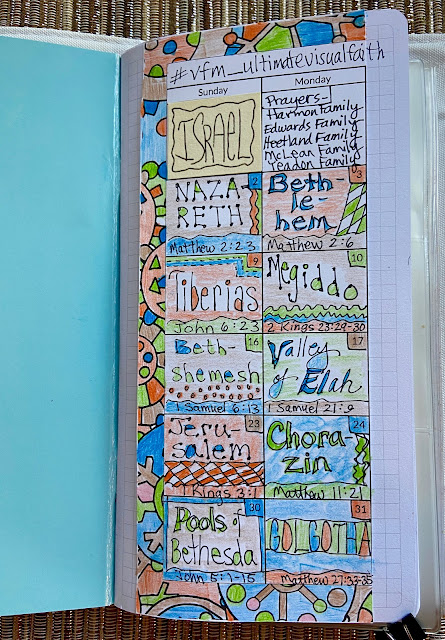 #vfm_ultimatevisualfaith
Sunday
Monday
ISRAEL
Prayers
Harmon Family
Edwards Family
Heetland Family
McLean Family
Yeadon Family
2
NAZA
RETH
Matthew 2:23
3
Beth-
le-
hem
Matthew 2:6
9
Tiberias
John 6:23
10
Megiddo
2 Kings 23:29-30
16
Beth-
shemesh
1 Samuel 6:13
17
Valley
of Elah
1 Samuel 21:9
23
Jeru-
salem
1 Kings 3:1
24
Chora-
zin
Matthew 11:21
30
Pools of
Bethesda
John 5:1-15
31
GOLGOTHA
Matthew 27:33-35